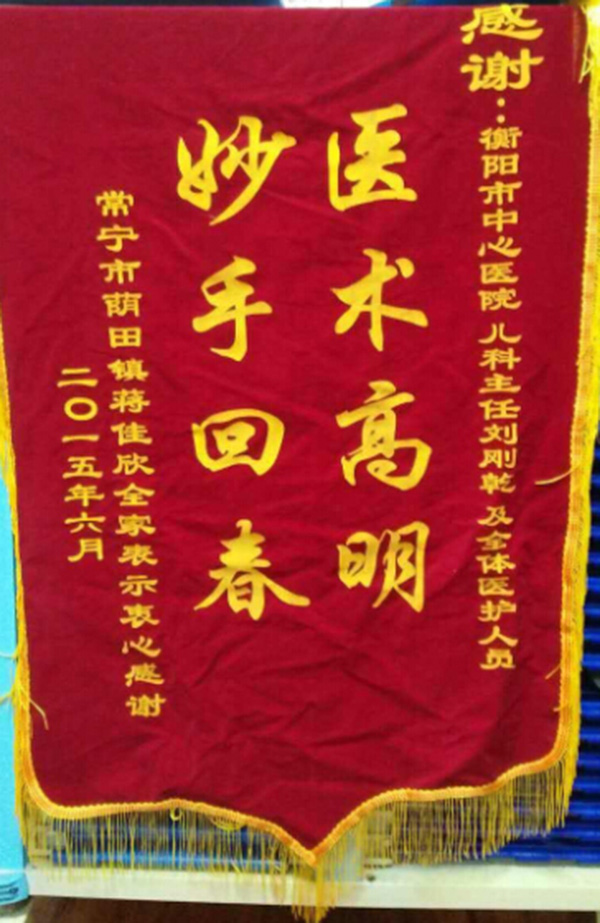 感谢：衡阳市中心医院 儿科主任刘刚乾 及全体医护人员
医术高明
妙手回春
常宁市荫田镇蒋佳欣全家表示衷心感谢
二〇一五年六月